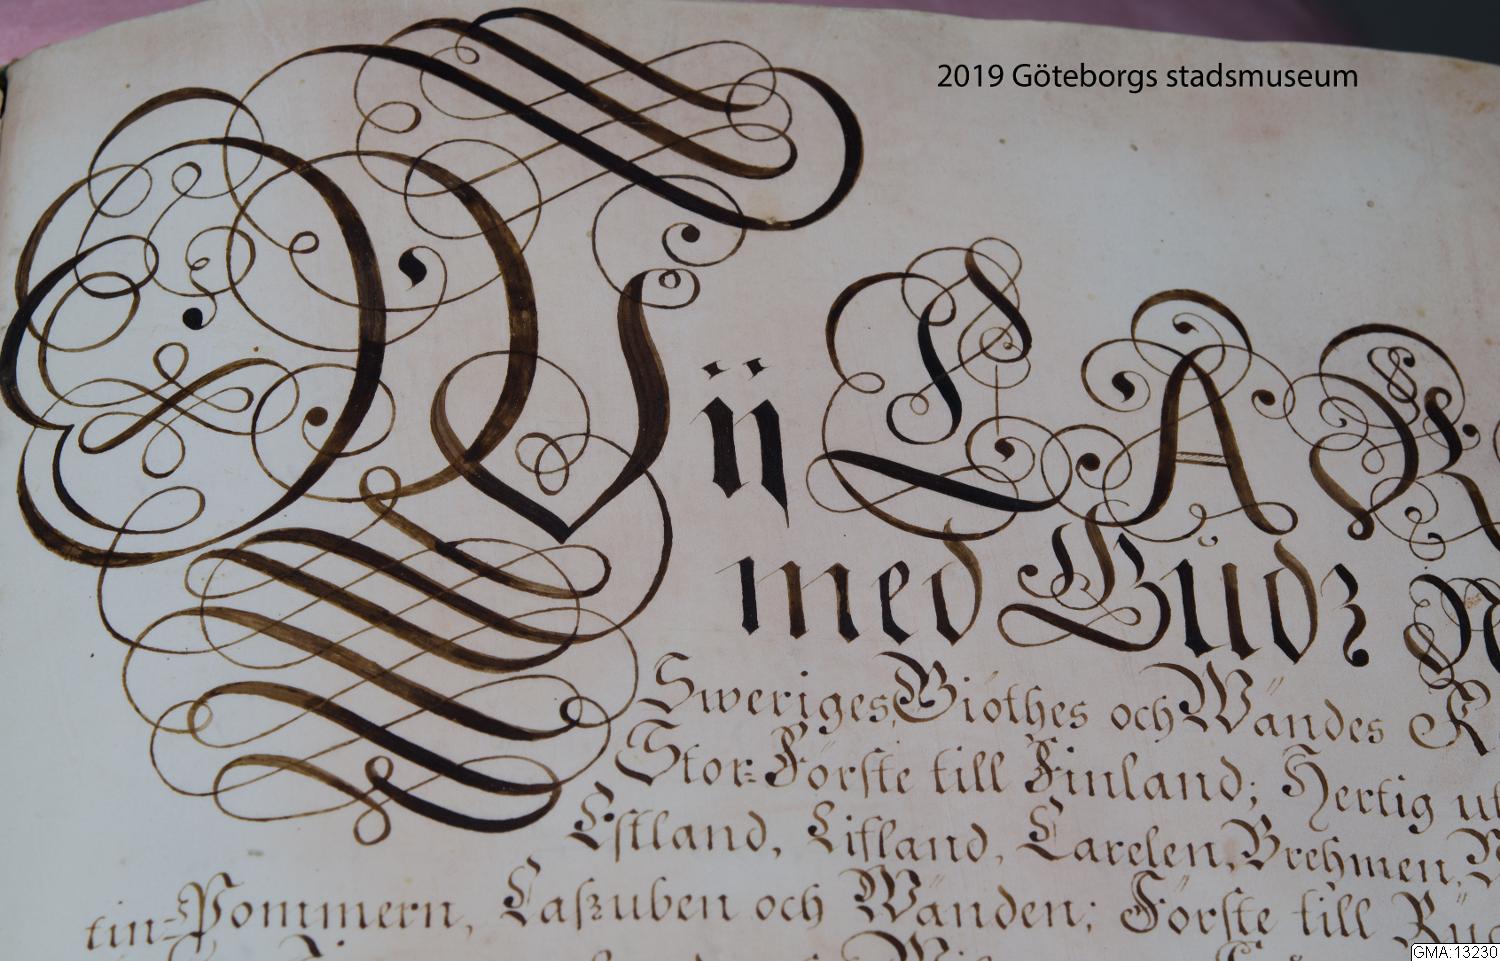 2019 Göteborgs stadsmuseum
Wij CAR
med Gudz N
Sweriges, Giöthes och Wändes K
Stor=Förste till Finland; Hertig ut
Estland, Lifland, Carelen, Brehmen,
tin=Pommern, Caßuben och Wänden; Förste till Rüg
GMA:13230